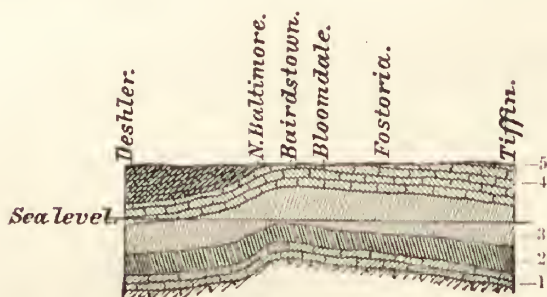 Deshler.
N. Baltimore.
Bairdstown.
Bloomdale.
Fostoria.
Tiffin.
5
4
Sea level
3
2
1